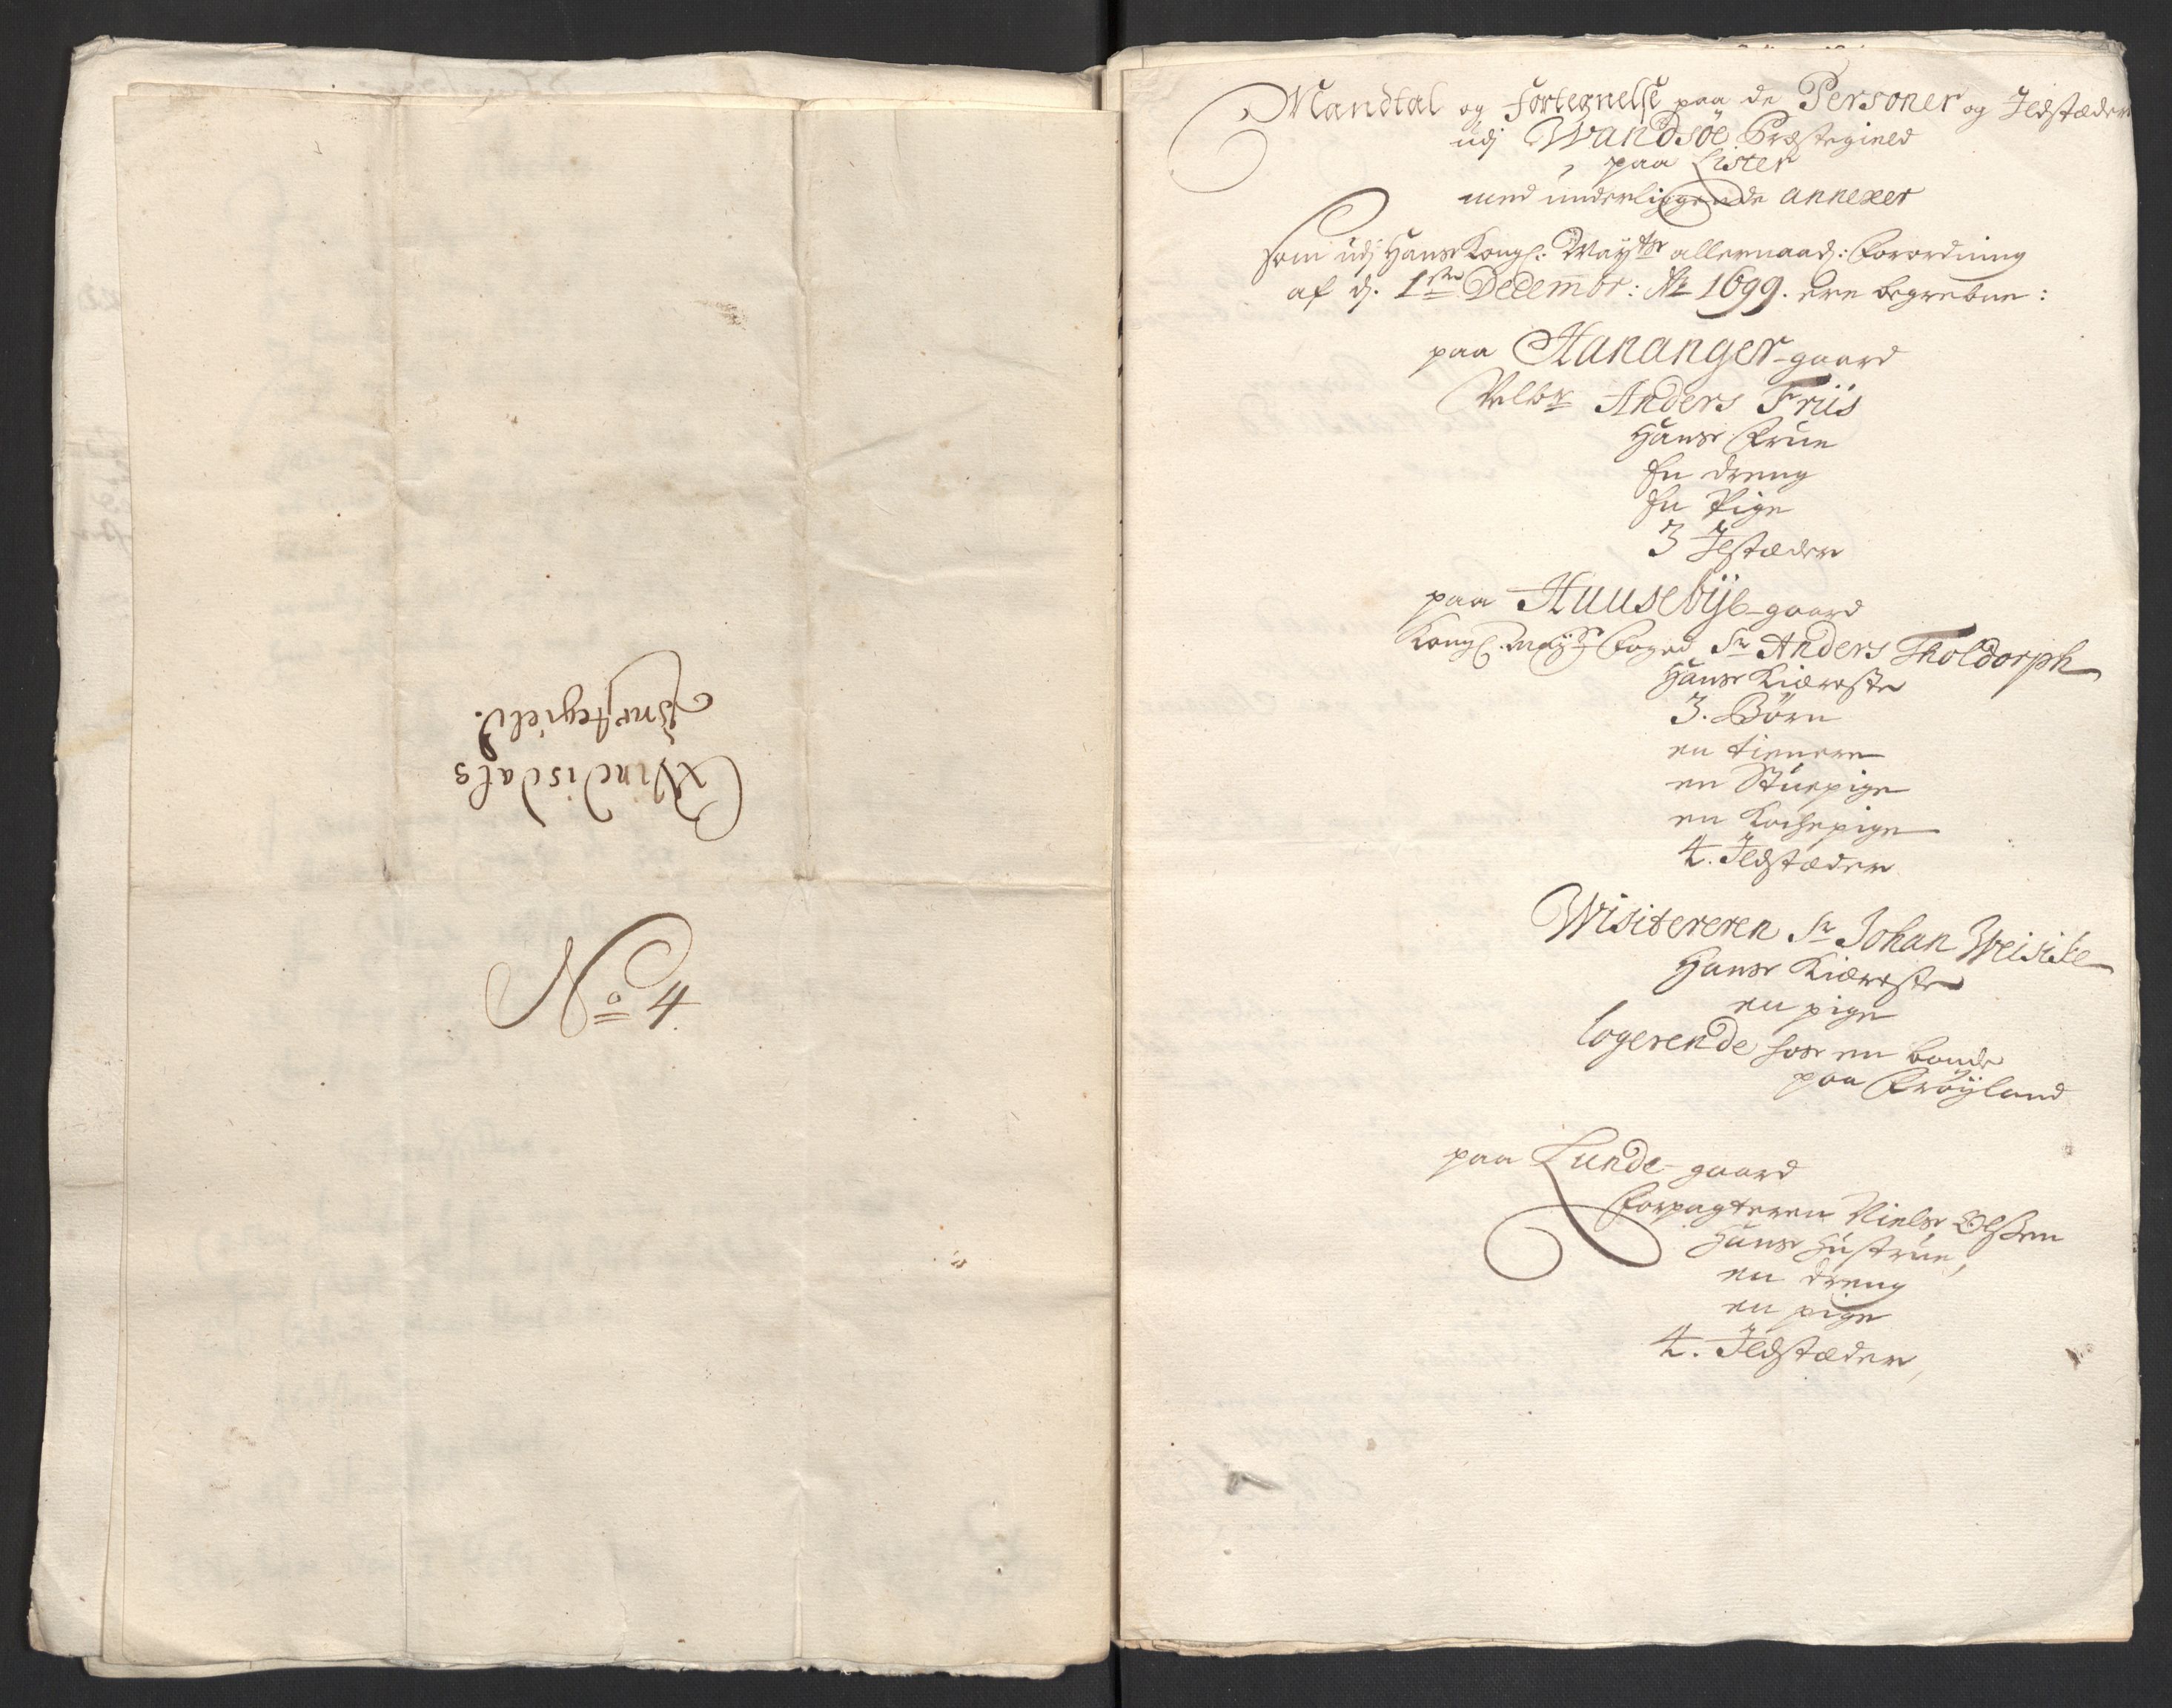 Qvindisdals
Præstegield.
No 4.
Mandtal og Fortegnelse paa de Personer og Ildstæder
udj Wandsøe Præstegield
paa Lister
med underliggende annexer
som udj Hans Kongl: Mayts allernaad: Forordning
af d. 1ste Decembr: Ao 1699. ere begrebne:
paa Hananger-gaard
Velbr Anders Friis
Hans Frue
En dreng
En Pige
3 Ildstæder
paa Huusebÿe-gaard
Kongl. Mayts Foged Sr Anders Tholdorph
Hans Kiæreste
3. Børn
en tienere
en Stuepige
en Kochepige
4. Ildstæder
Wisitereren Sr Johan
Hans Kiæreste
en pige
logerende hos en bonde
paa Frøÿland
paa Lunde-gaard
Forpagteren Niels Olßen
Hans Hustrue,
en dreng
en pige
4. Ildstæder,